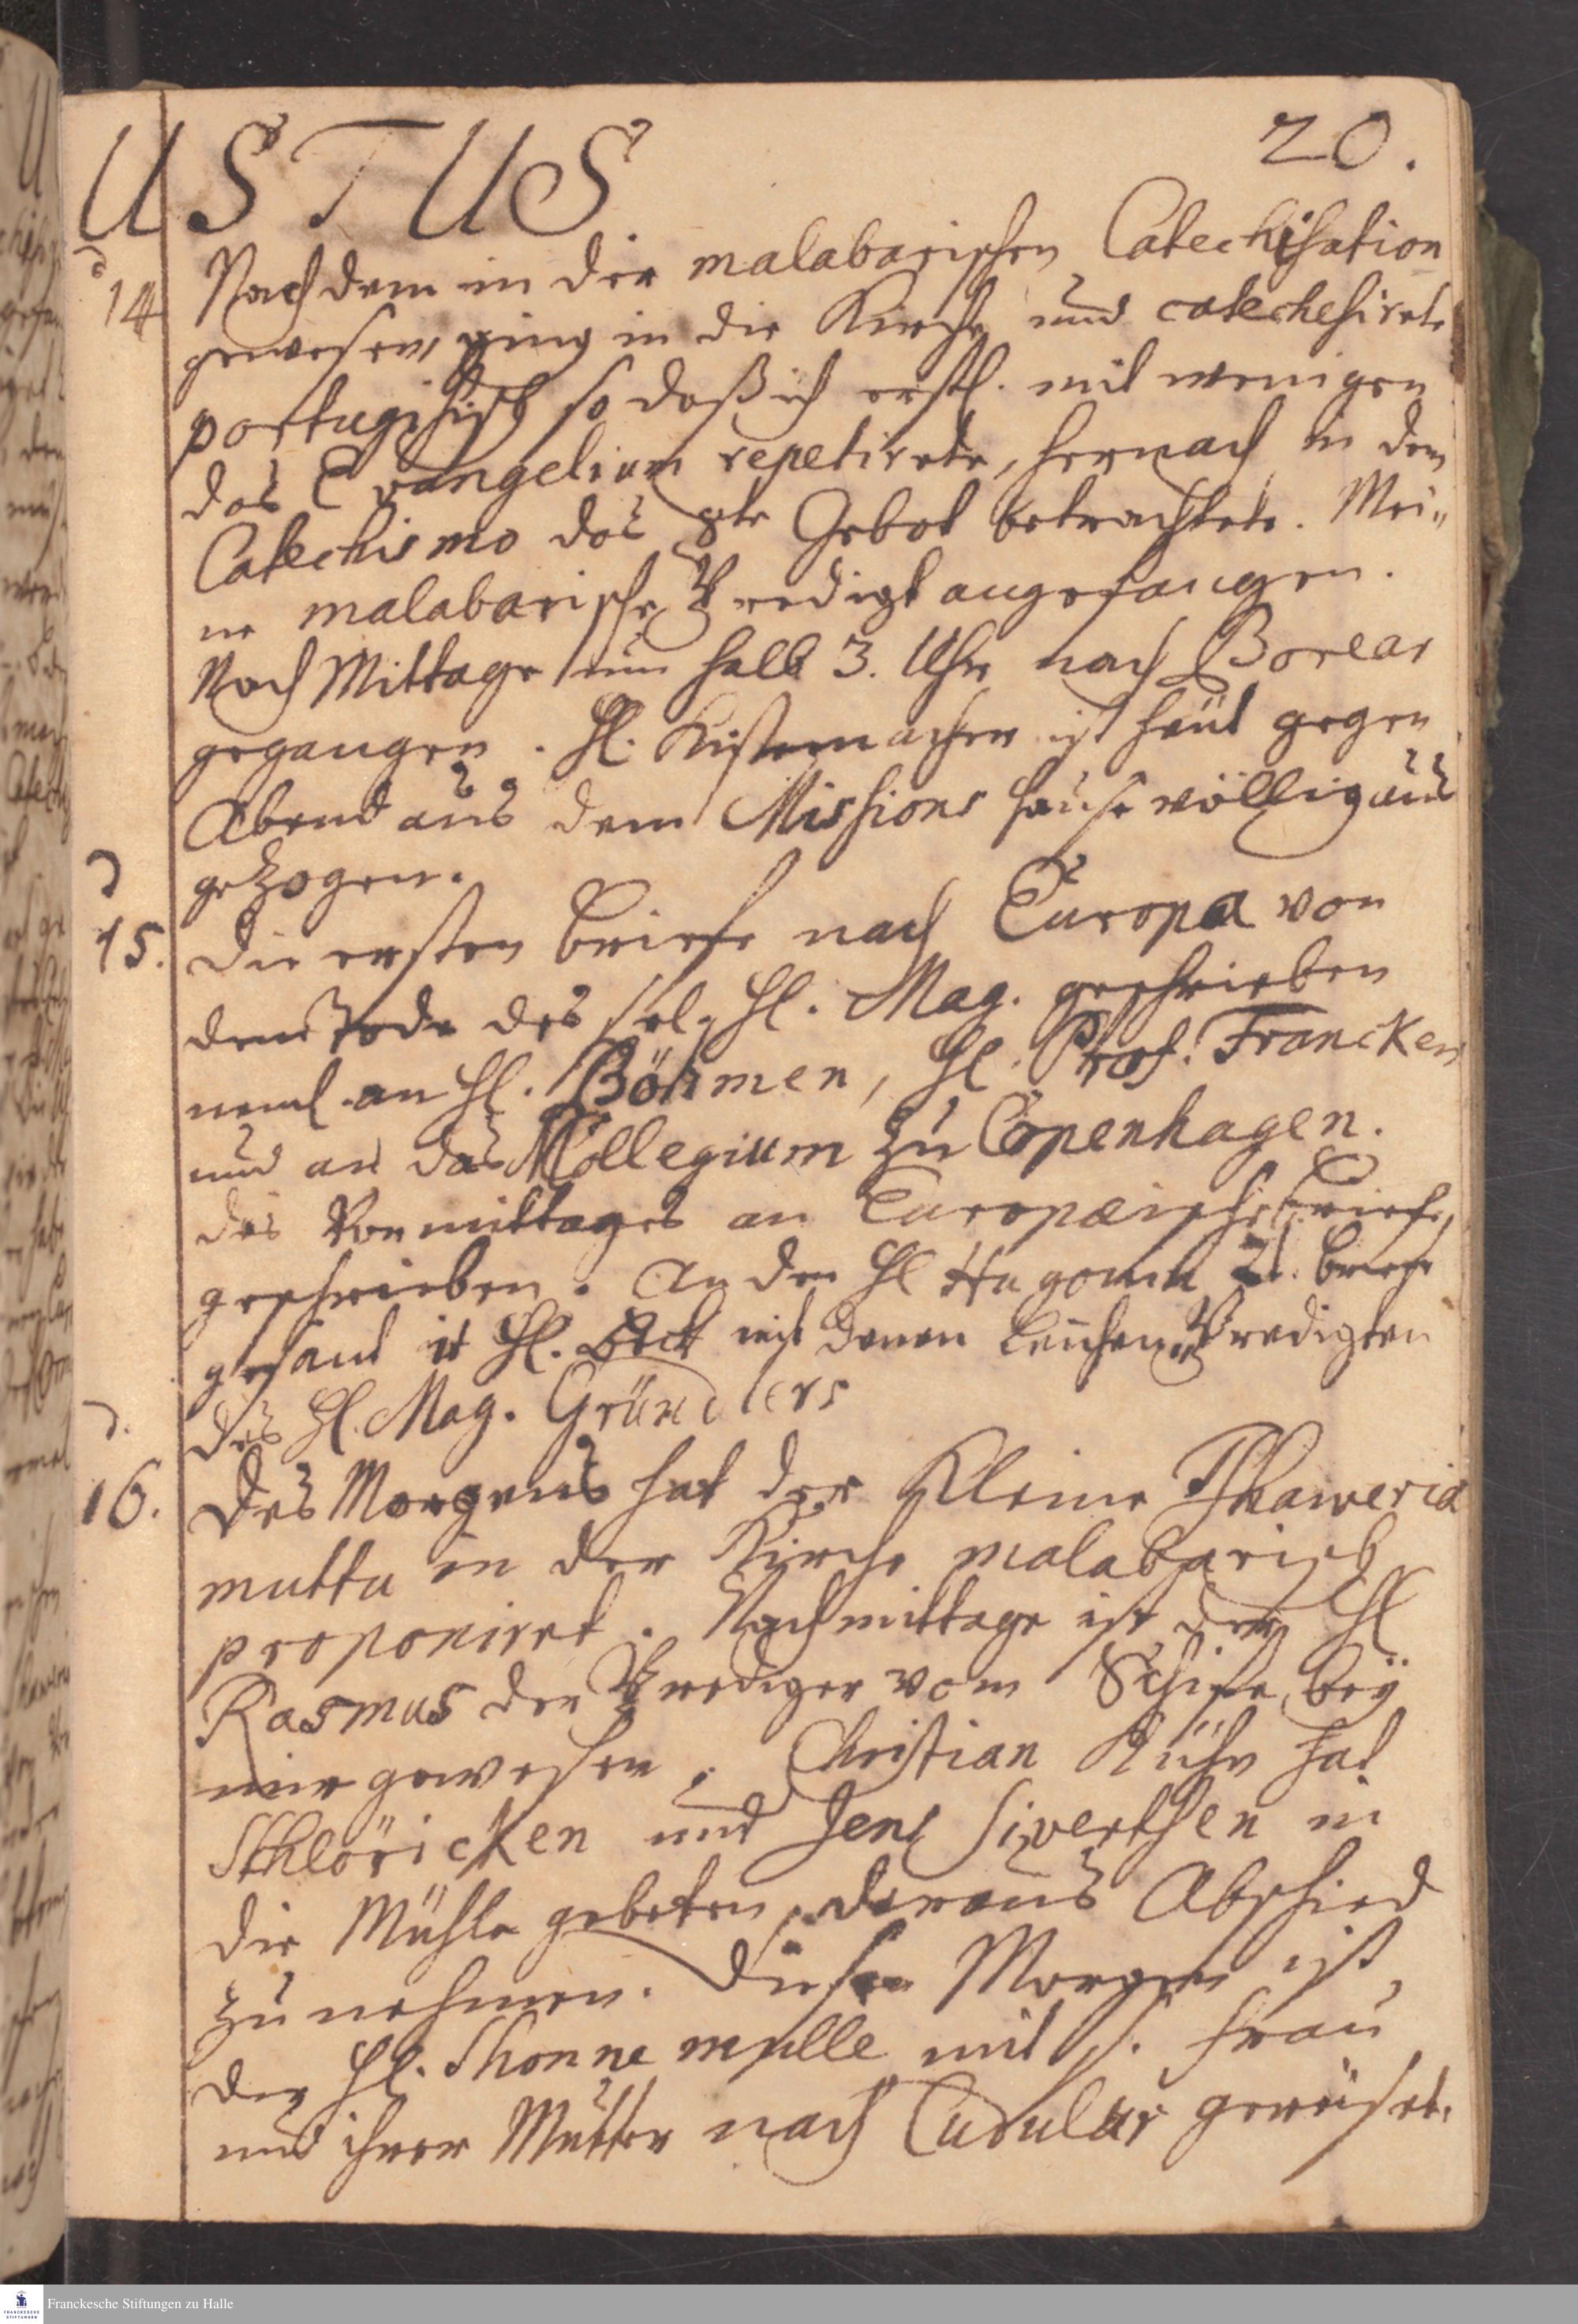 USTUS 20.
d 14 Nachdem in der malabarischen Catechisation
gewesen, ging in die Kirche und catechesirete
portugisisch so daß ich erstl. mit wenigen
das Evangelium repetirete, hernach in dem
Catechismo das 8te Gebot betrachtete. Mei„
ne malabarische Predigt angefangen.
Nach Mittage um halb 3. Uhr nach Borear
gegangen. Hl. Kistenmacher ist heut gegen
Abend aus dem Missions hause völlig aus
gezogen.
d 15. Die ersten Briefe nach Europa von
dem Tode des sel. Hl. Mag. geschrieben
neml. an Hl. Böhmen, Hl. Prof. Francken
und an das Collegium zu Copenhagen.
des Vormittages an Europæische briefe
geschrieben. An den Hl briefe
gesand it Hl. mit denen Leichen Predigten
des Hl. Mag. Gründlers
d. 16. Des Morgens hat der Kleine Thaweria
muttu in der Kirche malabarisch
proponiret. Nachmittage ist der Hl
Rasmus der Prediger vom Schiffe bey
mir gewesen. Christian Kühn hat
Schlöricken und Jens Siverthen in
die Mühle gebeten, daraus Abschied
zu nehmen. Diesen Morgen ist
der Hl. Thonne mulle mit s. Frau
und ihrer Mutter nach Cudulur gereiset.
Franckesche Stiftungen zu Halle